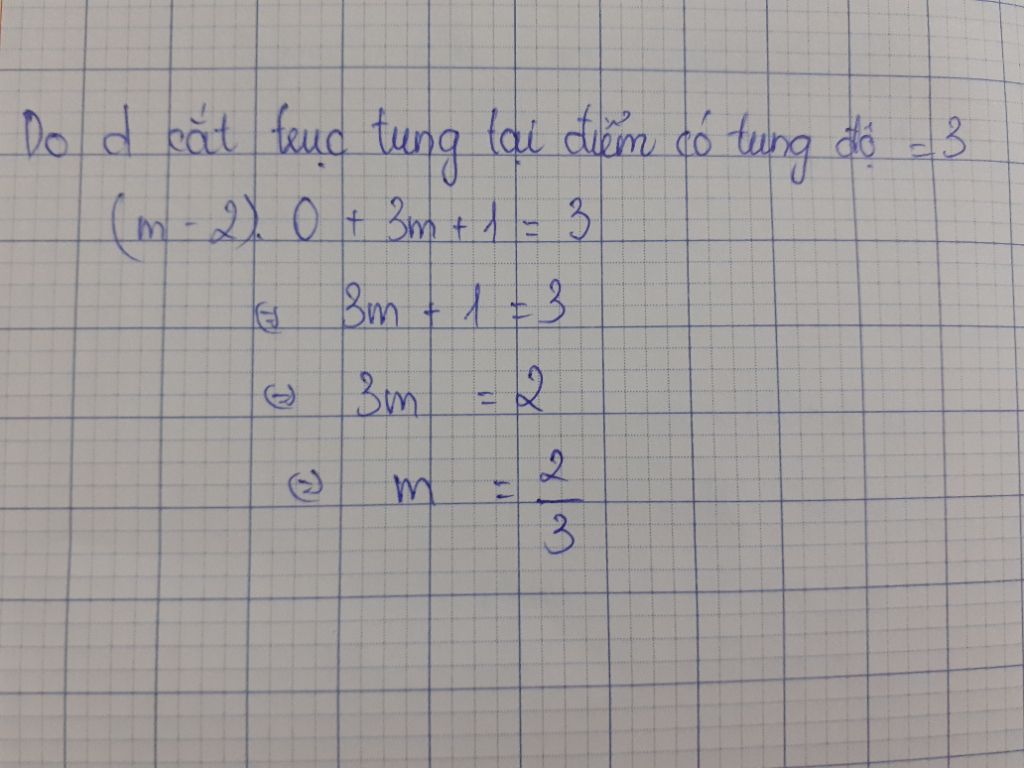 Do d cắt trục tung tại điểm có tung độ = 3
(m - 2). 0 + 3m + 1 = 3
⇔ 3m + 1 = 3
⇔ 3m = 2
⇔ m = 2/3